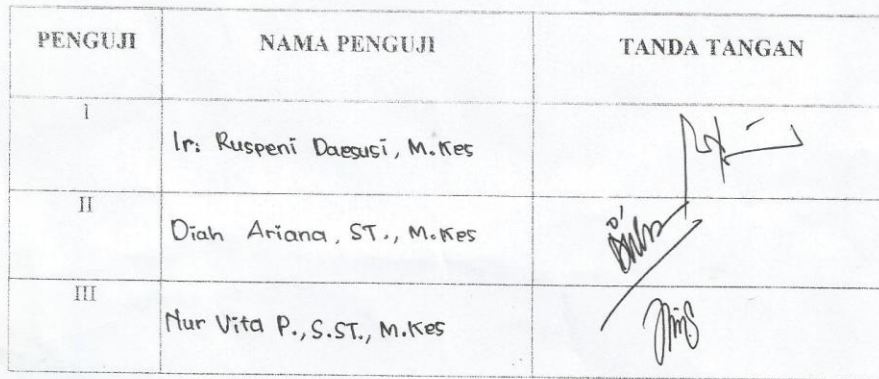 PENGUJI NAMA PENGUJI TANDA TANGAN
I Ir. Ruspeni Daesusi, M.Kes
II Diah Ariana, ST., M.Kes
III Nur Vita P., S.ST., M.Kes